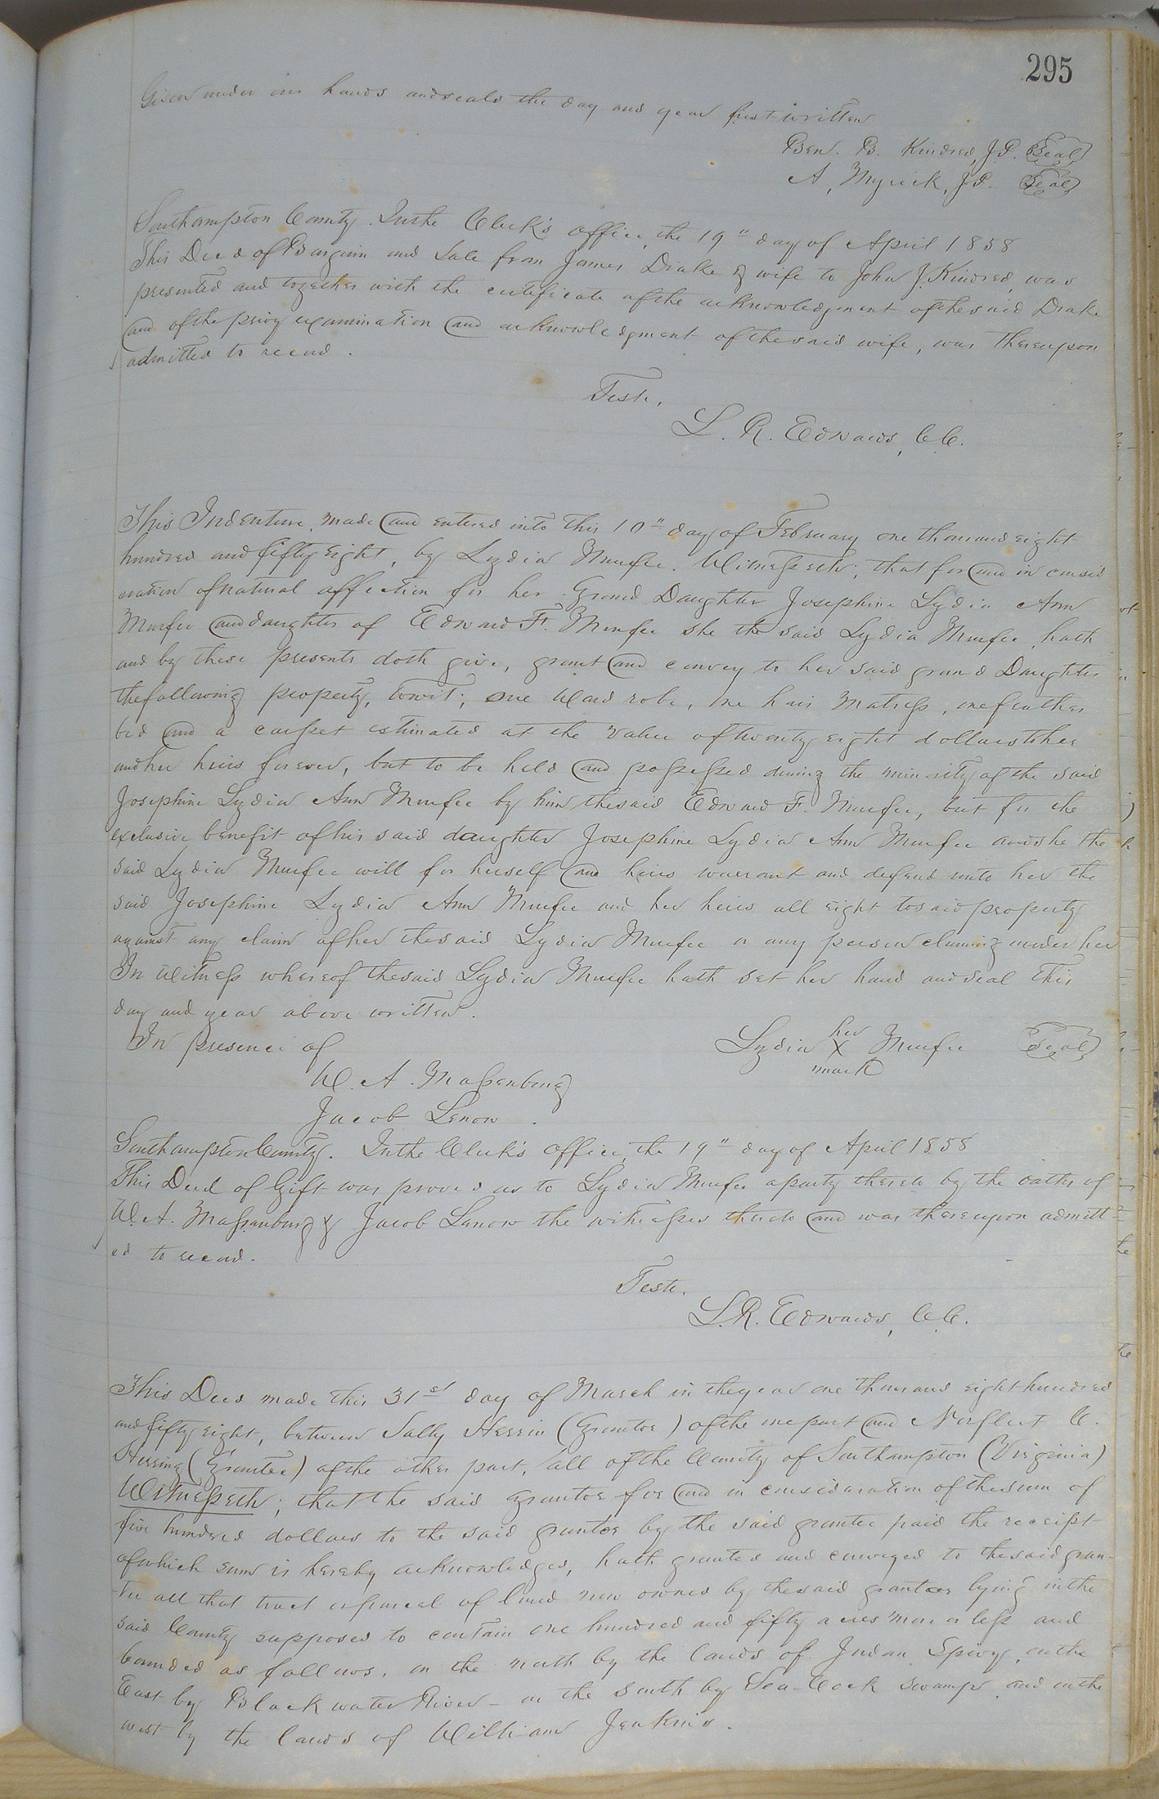 295
Given under our hands and seals the day and year first written
Ben. B. Kindred, J.P. Seal
A, Myrick, J.P. Seal
Southampton County. In the Clerk's office, the 19" day of April 1858
This Deed of Bargain and Sale from James Drake & wife to John J. Kindred, was
presented and together with the certificate of the acknowledgment of the said Drake
and of the privy examination and acknowledgment of the said wife, was thereupon
admitted to record.
Teste,
L. R. Edwards, C.C.
This Indenture, made and entered into this 10" day of February one thousand eight
hundred and fifty eight, by Lydia Murfee. Witnesseth; that for and in consid
eration of natural affection for her Grand Daughter Josephine Lydia Ann
Murfee and daughter of Edward F. Murfee she the said Lydia Murfee hath
and by these presents doth give, grant and convey to her said grand Daughter
the following property, towit; one Ward robe, one hair Matress, one feather
bed and a carpet estimated at the value of twenty eight dollars to her
and her heirs forever, but to be held and possessed during the minority of the said
Josephine Lydia Ann Murfee by him the said Edward F. Murfee, but for the
exclusive benefit of his said daughter Josephine Lydia Ann Murfee and she the
said Lydia Murfee will for herself and heirs warrant and defend unto her the
said Josephine Lydia Ann Murfee and her heirs all right to said property
against any claim of her the said Lydia Murfee or any person claiming under her
In Witness whereof the said Lydia Murfee hath set her hand and seal this
day and year above written.
In presence of
Lydia her X mark Murfee Seal
W. A. Massenburg
Jacob Lenow.
Southampton County. In the Clerk's office, the 19" day of April 1858
This Deed of Gift was proved as to Lydia Murfee a party thereto by the oaths of
W. A. Massenburg & Jacob Lenow the witnesses thereto and was thereupon admitt-
ed to record.
Teste.
L. R. Edwards, C.C.
This Deed made this 31st day of March in the year one thousand eight hundred
and fifty eight, between Sally Herrin (Grantor) of the one part and Norfleet C.
Herring (Grantee) of the other part, all of the County of Southampton (Virginia)
Witnesseth; that the said grantor for and in consideration of the sum of
five hundred dollars to the said grantor by the said grantee paid the receipt
of which sum is hereby acknowledges, hath granted and conveyed to the said gran-
tee all that tract or parcel of land now owned by the said grantor lying in the
said County supposed to contain one hundred and fifty acres more or less and
bounded as follows. on the north by the lands of Jordan Spivy, on the
East by Black water River - on the south by Sea-Cock Swamp and on the
west by the lands of William Jenkins.